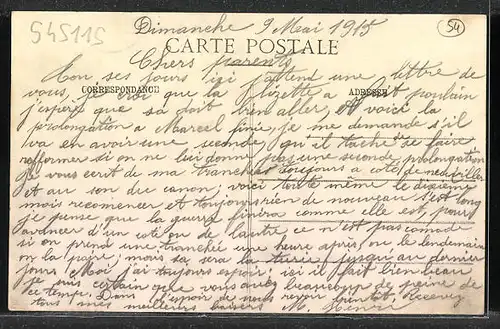 545115
54
Dimanche 9 Mai 1915
CARTE POSTALE
Chers parents
CORRESPONDANCE
ADRESSE
ses jours ici j'attend une lettre de
vous, je croi que la a fait poulain
j'espère que sa doit bien aller, voici la
prolongation a Marcel finie, je me demande s'il
va en avoir une seconde, qu'il tache de se faire
refformer si on ne lui donne pas une seconde prolongation
Je vous ecrit de ma tranchee toujours a coté de
et au son du canon; voici toute même le dixième
mois recommencer et toujours rien de nouveau s'est long
je pense que la guerre finira comme elle est, pour
avancer d'un coté ou de l'autre ce n'est pas comode
si on prend une tranchée une heure après, ou le lendemain
on la paye; mais sa, sera la jusqu'au dernier
jours Moi j'ai toujours espoir; ici il fait bien beau
je suis certain que vous avez beaucoup de peine de
ce temps. Dans l'espoir de nous revoir bientot Recevez
tous mes meilleurs baisers M. Henri